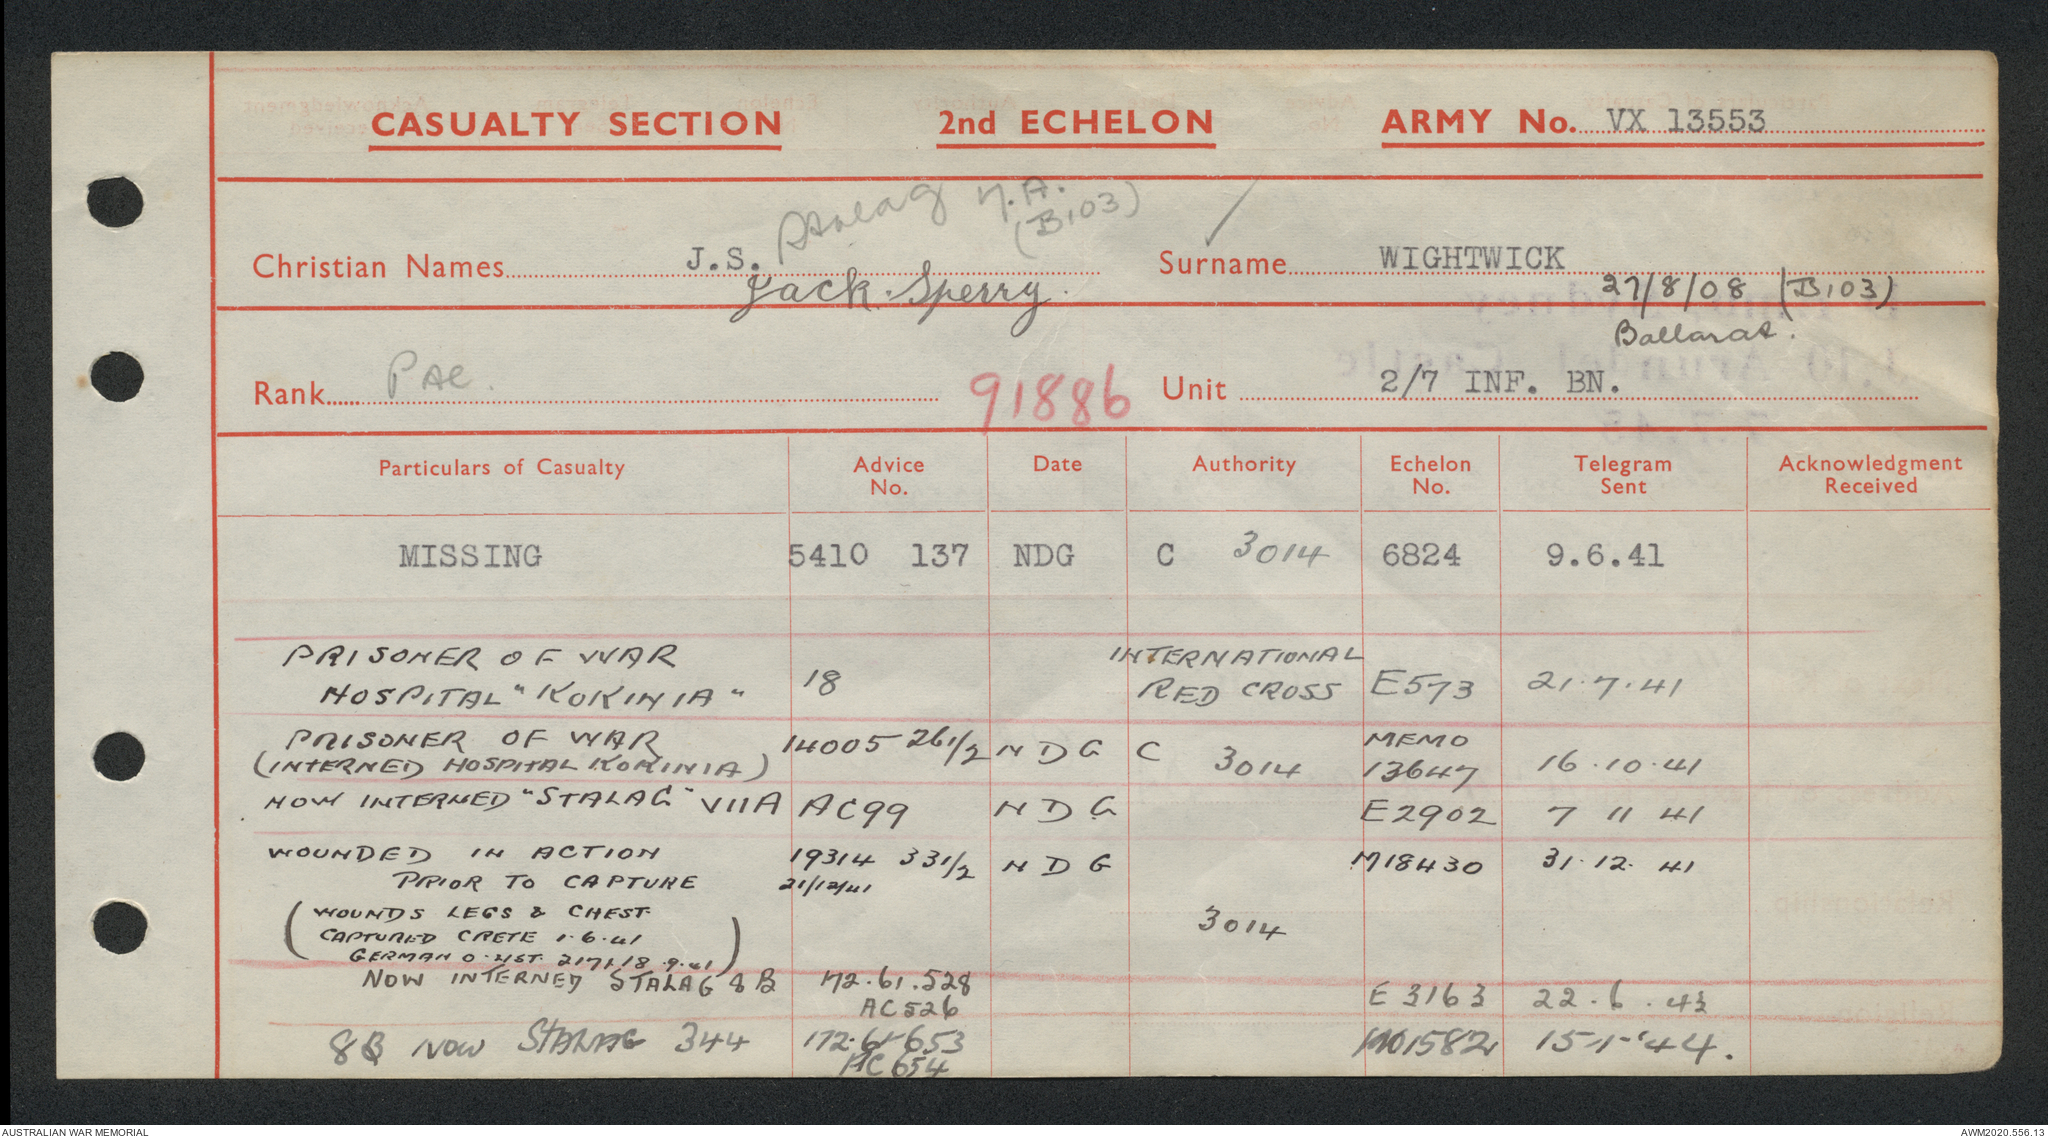 CASUALTY SECTION 2nd ECHELON ARMY No. VX 13553
Stalag 7.A.
(B103)
Christian Names J.S. Surname WIGHTWICK
Jack Sperry 27/8/08 (B103)
Ballarat.
Rank Pte. 91886 Unit 2/7 INF. BN.
Particulars of Casualty Advice No. Date Authority Echelon No. Telegram Sent Acknowledgment Received
MISSING 5410 137 NDG C 3014 6824 9.6.41
PRISONER OF WAR INTERNATIONAL
HOSPITAL "KOKINIA" 18 RED CROSS E573 21.7.41
PRISONER OF WAR 14005 261/2 NDG C MEMO
(INTERNED HOSPITAL KOKINIA) 3014 13647 16.10.41
NOW INTERNED "STALAG" VIIA AC99 NDG E2902 7 11 41
WOUNDED IN ACTION 19314 331/2 NDG M18430 31.12.41
PRIOR TO CAPTURE 21/12/41
(WOUNDS LEGS & CHEST
CAPTURED CRETE 1.6.41 3014
GERMAN O. LIST. 18.9.41)
NOW INTERNED STALAG 8B 172.61.528 E 3163 22.6.43
AC526
8B NOW STALAG 344 172.61.653 1582 15-1-44.
AC 654
AUSTRALIAN WAR MEMORIAL AWM2020.556.13